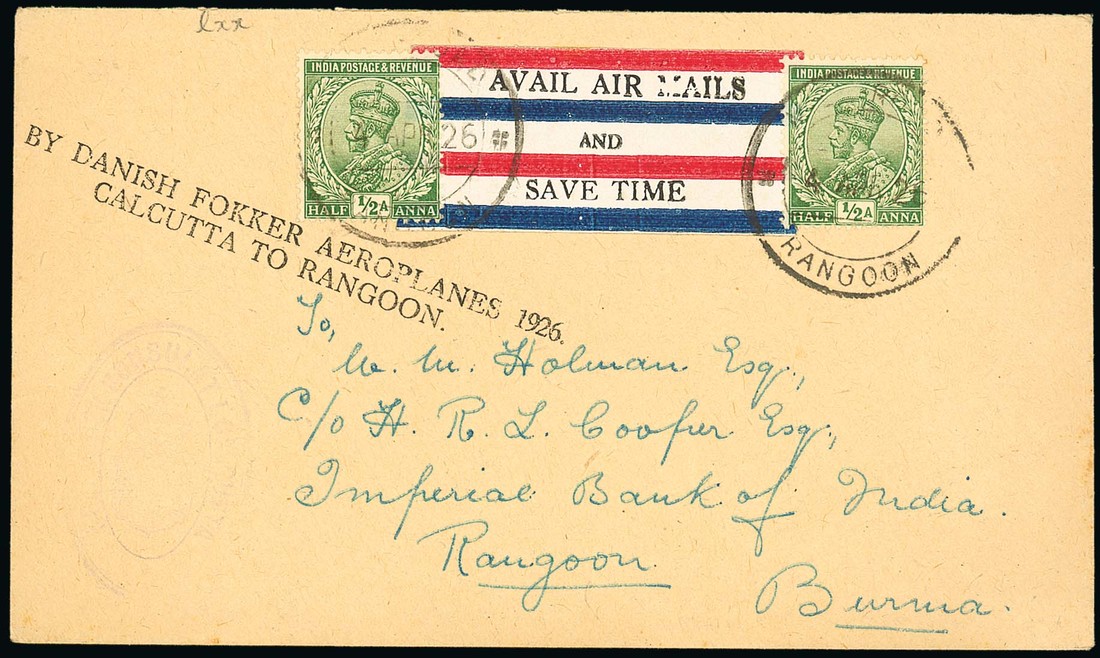 lxx
INDIA POSTAGE & REVENUE
HALF 1/2A ANNA
AVAIL AIR MAILS
AND
SAVE TIME
INDIA POSTAGE & REVENUE
HALF 1/2A ANNA
26
RANGOON
BY DANISH FOKKER AEROPLANES 1926.
CALCUTTA TO RANGOON.
To,
W. M. Holman Esq.,
C/o H. R. L. Cooper Esq.,
Imperial Bank of India.
Rangoon
Burma.